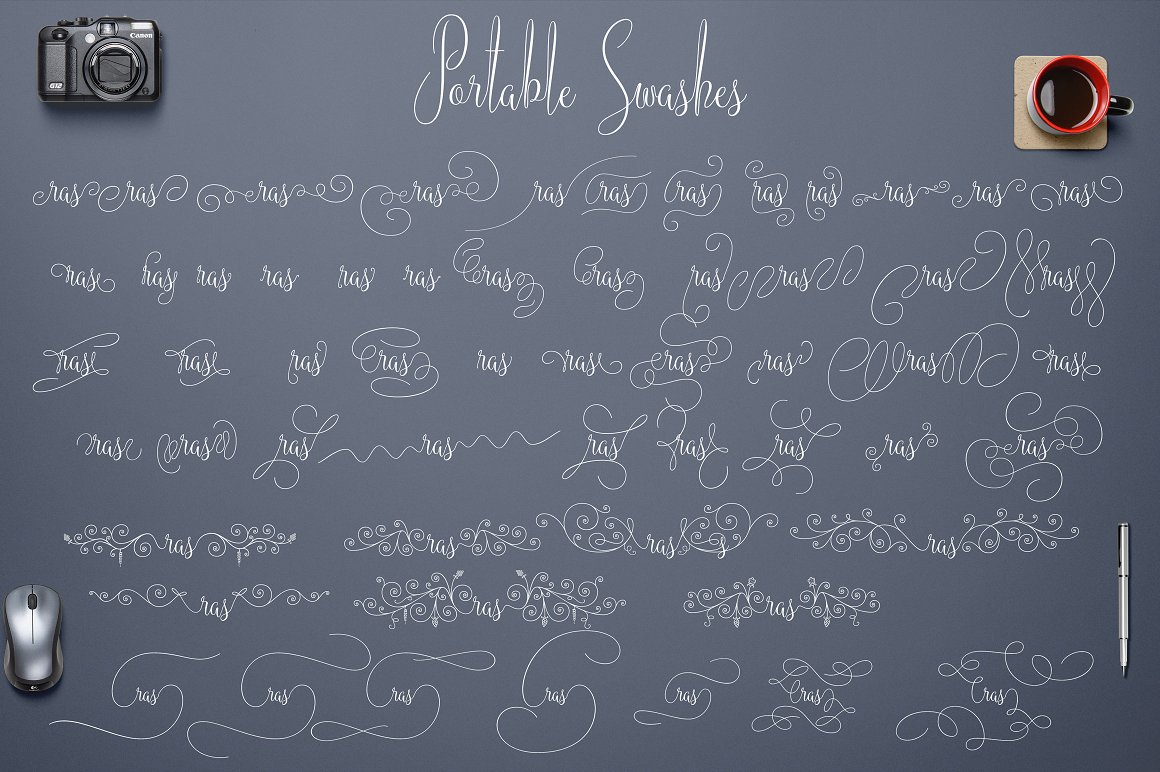 Canon
G12
Portable Swashes
ras ras ras ras ras ras ras ras ras ras ras ras
ras ras ras ras ras ras ras ras ras ras ras ras
ras ras ras ras ras ras ras ras ras ras
ras ras ras ras ras ras ras ras ras
ras ras ras ras
ras ras ras
ras ras ras ras ras ras ras